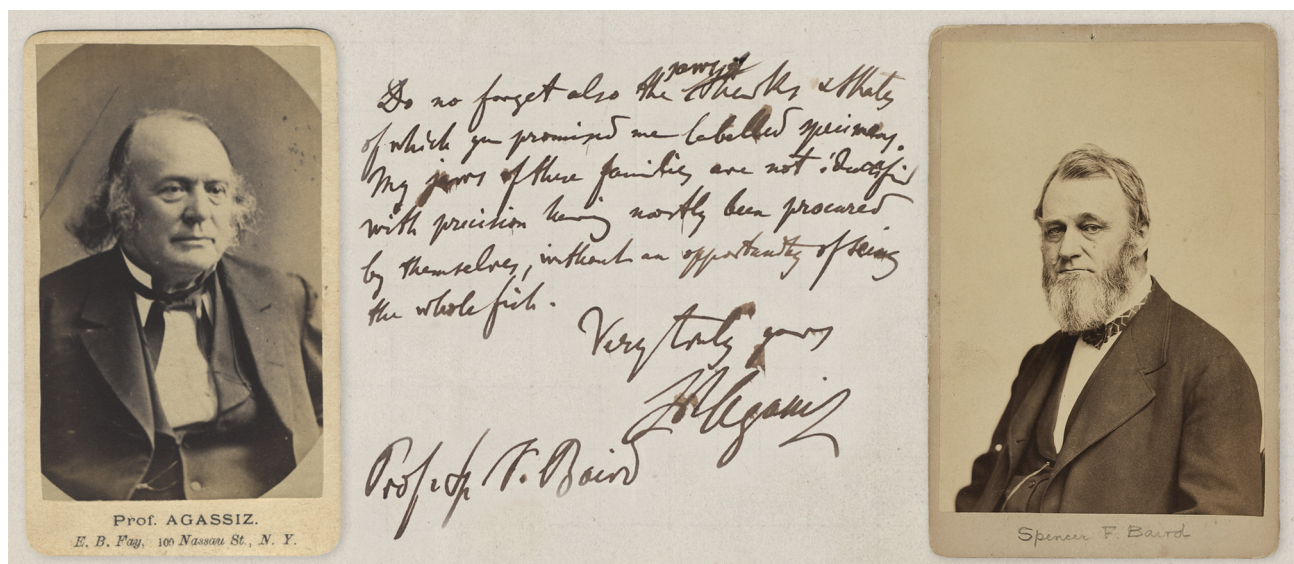 Prof. AGASSIZ.
E. B. Fay, 100 Nassau St., N. Y.
Do no forget also the jaws of Sharks & Skates
of which you promised me labelled specimens.
My jaws of these families are not identified
with precision having mostly been procured
by themselves, without an opportunity of seeing
the whole fish.
Very truly yours
Ls Agassiz
Prof. Sp. F. Baird
Spencer F. Baird